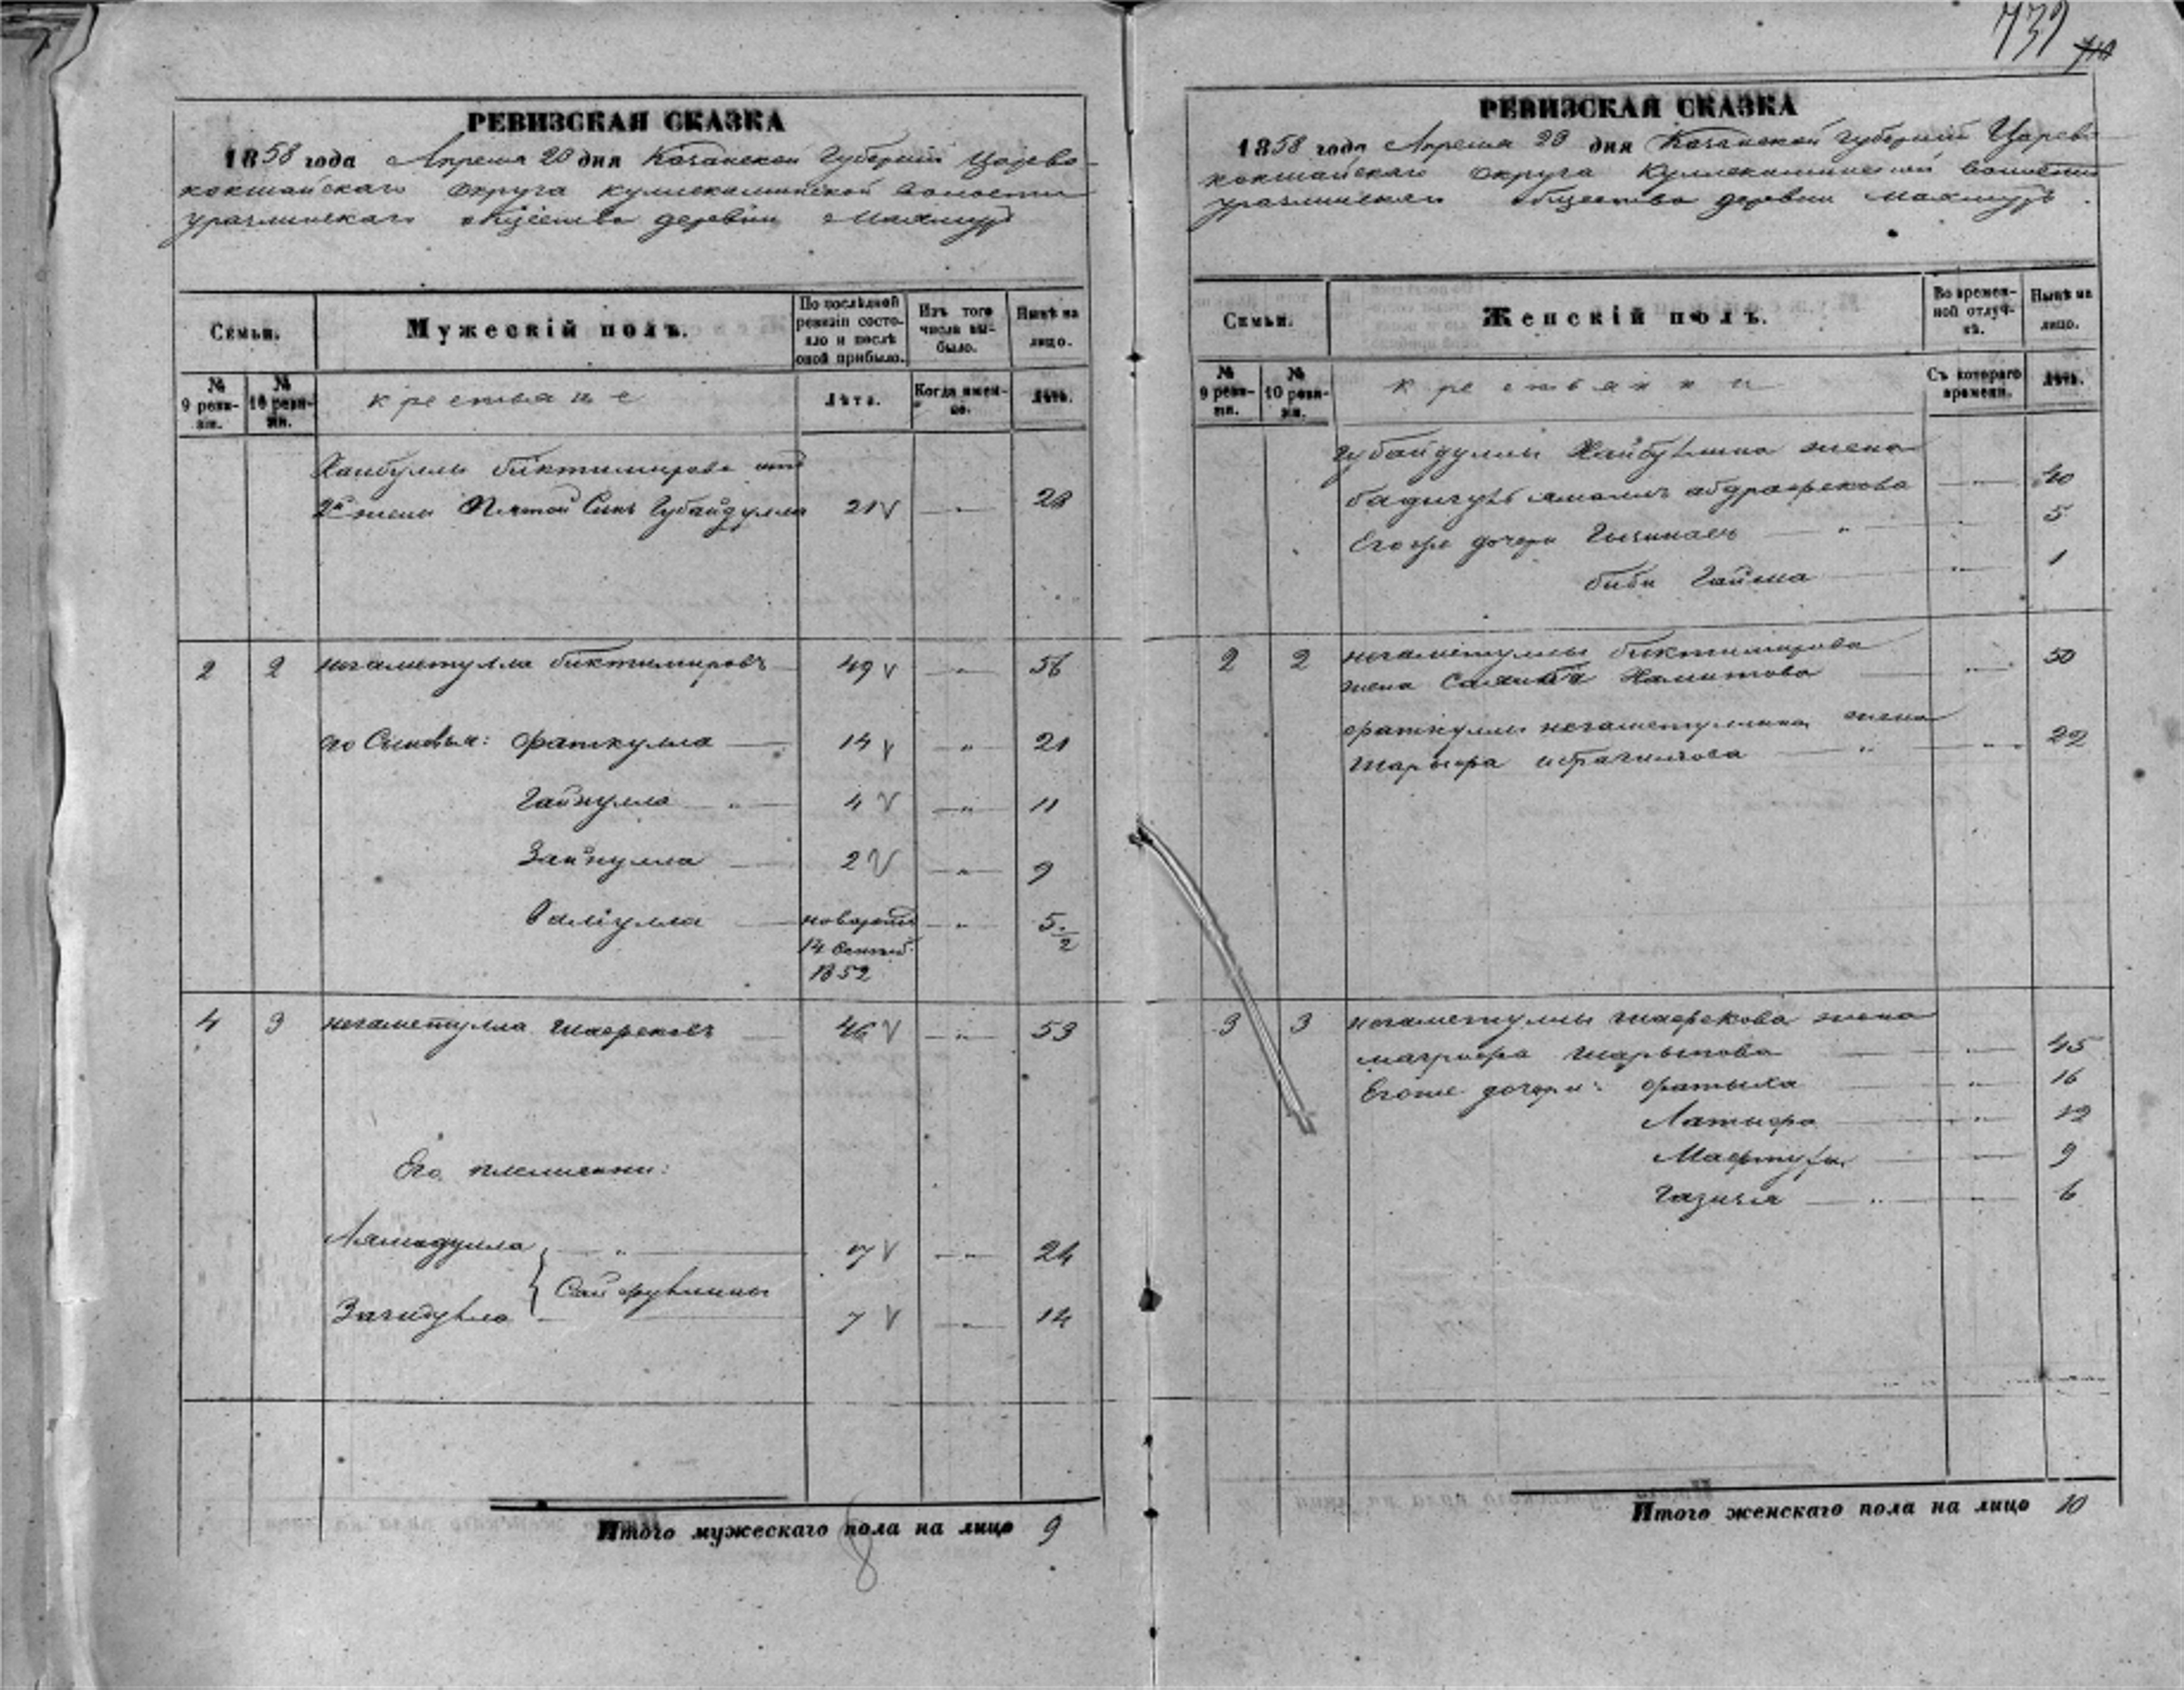 739
710
РЕВИЗСКАЯ СКАЗКА
1858 года Апреля 20 дня Казанской Губернии Царево-
кокшайскаго округа кулlекиминской волости
урazлинскаго общества деревни Махмуд
Семьи.
Мужескій полъ.
По послѣдней ревизіи состояло и послѣ оной прибыло.
Изъ того числа выбыло.
Нынѣ на лицо.
№ 9 ревизіи.
№ 10 ревизіи.
крестьяне
Лѣта.
Когда именно.
Лѣта.
Хайбуллы биктимирова отъ
2й жены Пятой Сынъ Губайдулла 21 28
2 2 негаметулла биктимировъ 49 56
его Сыновья: фаткулла 14 21
Гайнулла 4 11
Зайнулла 2 9
Галіулла новорожд 5 1/2
14 Сентяб.
1852
4 3 негаметулла шафековъ 46 53
Его племянни:
24
Сайфулины
Загидулла 7 14
Итого мужескаго пола на лицо 9
8
РЕВИЗСКАЯ СКАЗКА
1858 года Апреля 20 дня Казанской Губерніи Царево
кокшайскаго округа волости
общества деревни Махмудъ
Семьи.
Женскій полъ.
Во временной отлучкѣ.
Нынѣ на лицо.
№ 9 ревизіи.
№ 10 ревизіи.
крестьянки
Съ котораго времени.
Лѣта.
Губайдуллы Хайбулина жена
абдрафекова 40
Его же дочери 5
биби Гайша 1
2 2 негаметуллы биктимирова
жена Хамитова 50
фаткуллы негаметуллина жена
ибрагимова 22
3 3 негаметуллы шафекова жена
магруфа шарыпова 45
Егоже дочери: фатыха 16
Латыфа 12
9
Газизя 6
Итого женскаго пола на лицо 10